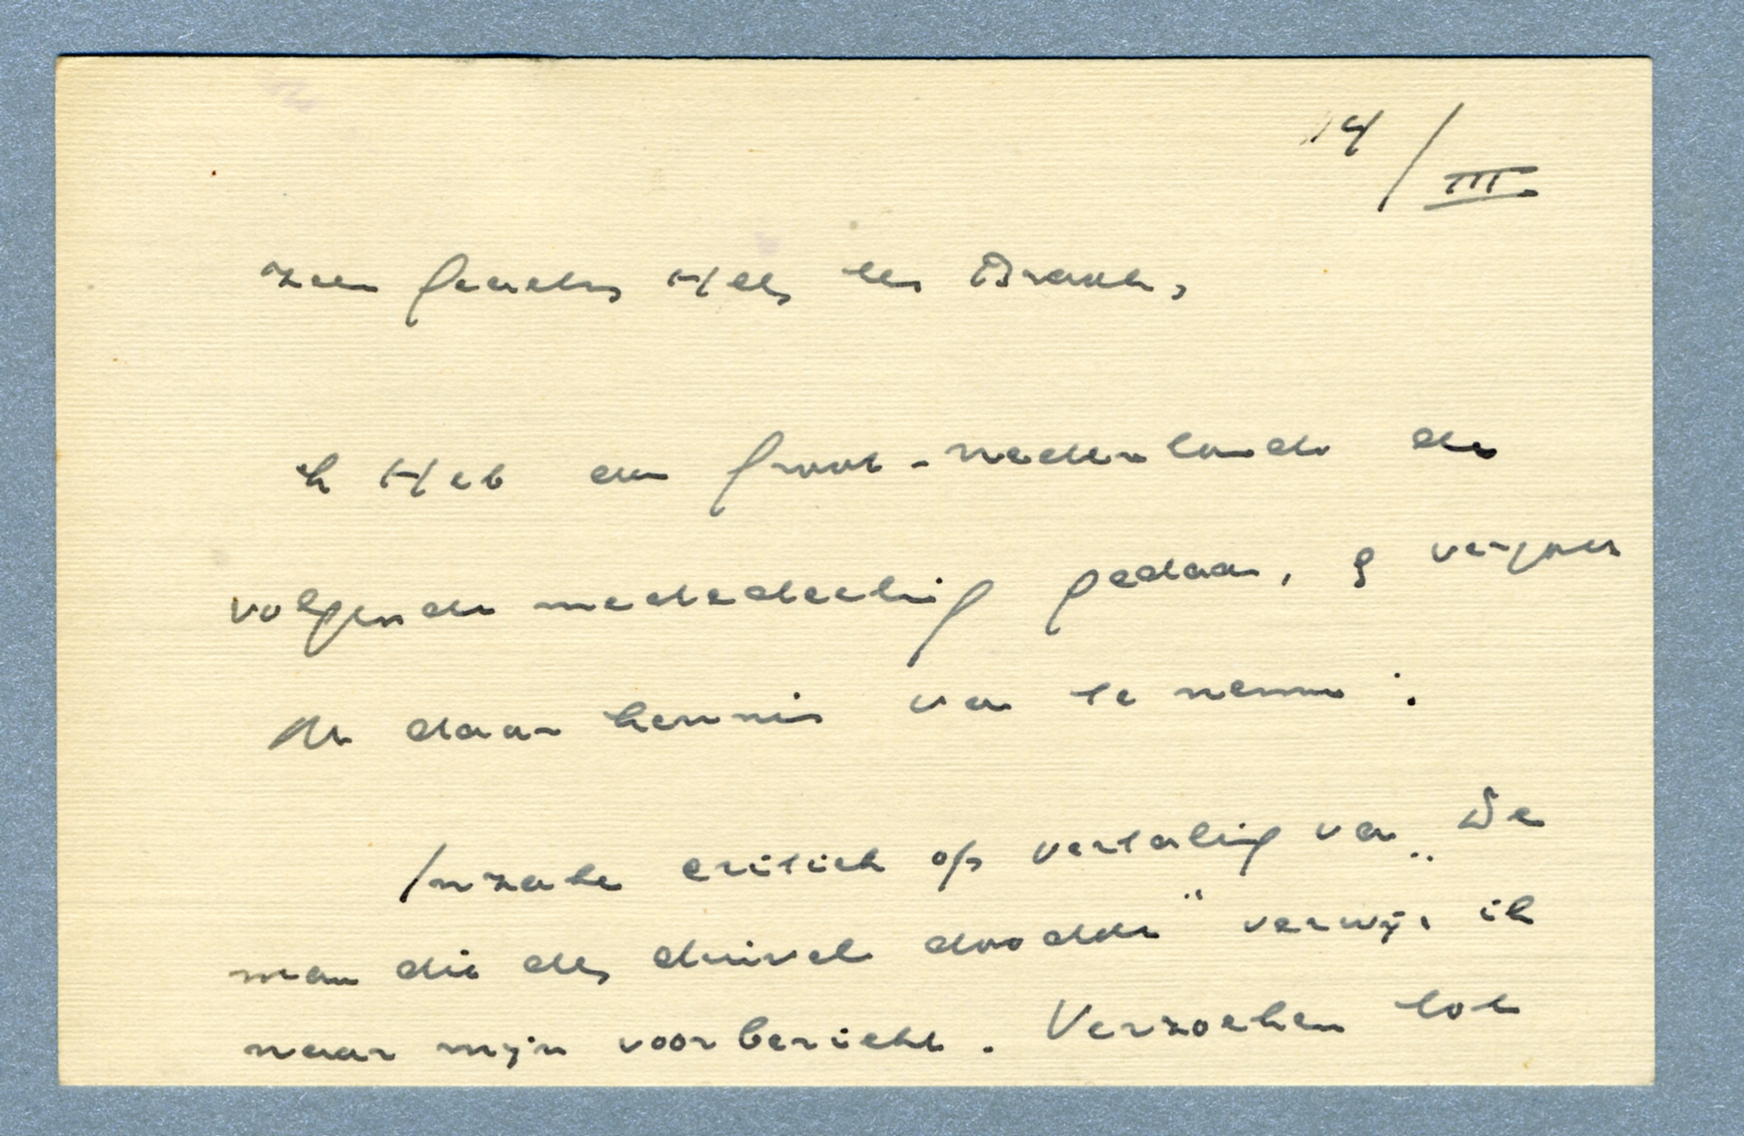 14/III
Zeer geachte Heer ter Braak,
Ik Heb aan Groot-Nederland de
volgende mededeeling gedaan, & verzoek
U daar kennis van te nemen:
Inzake critiek op vertaling van „De
man die den duivel doodde" verwijs ik
naar mijn voorbericht. Verzoeken tot